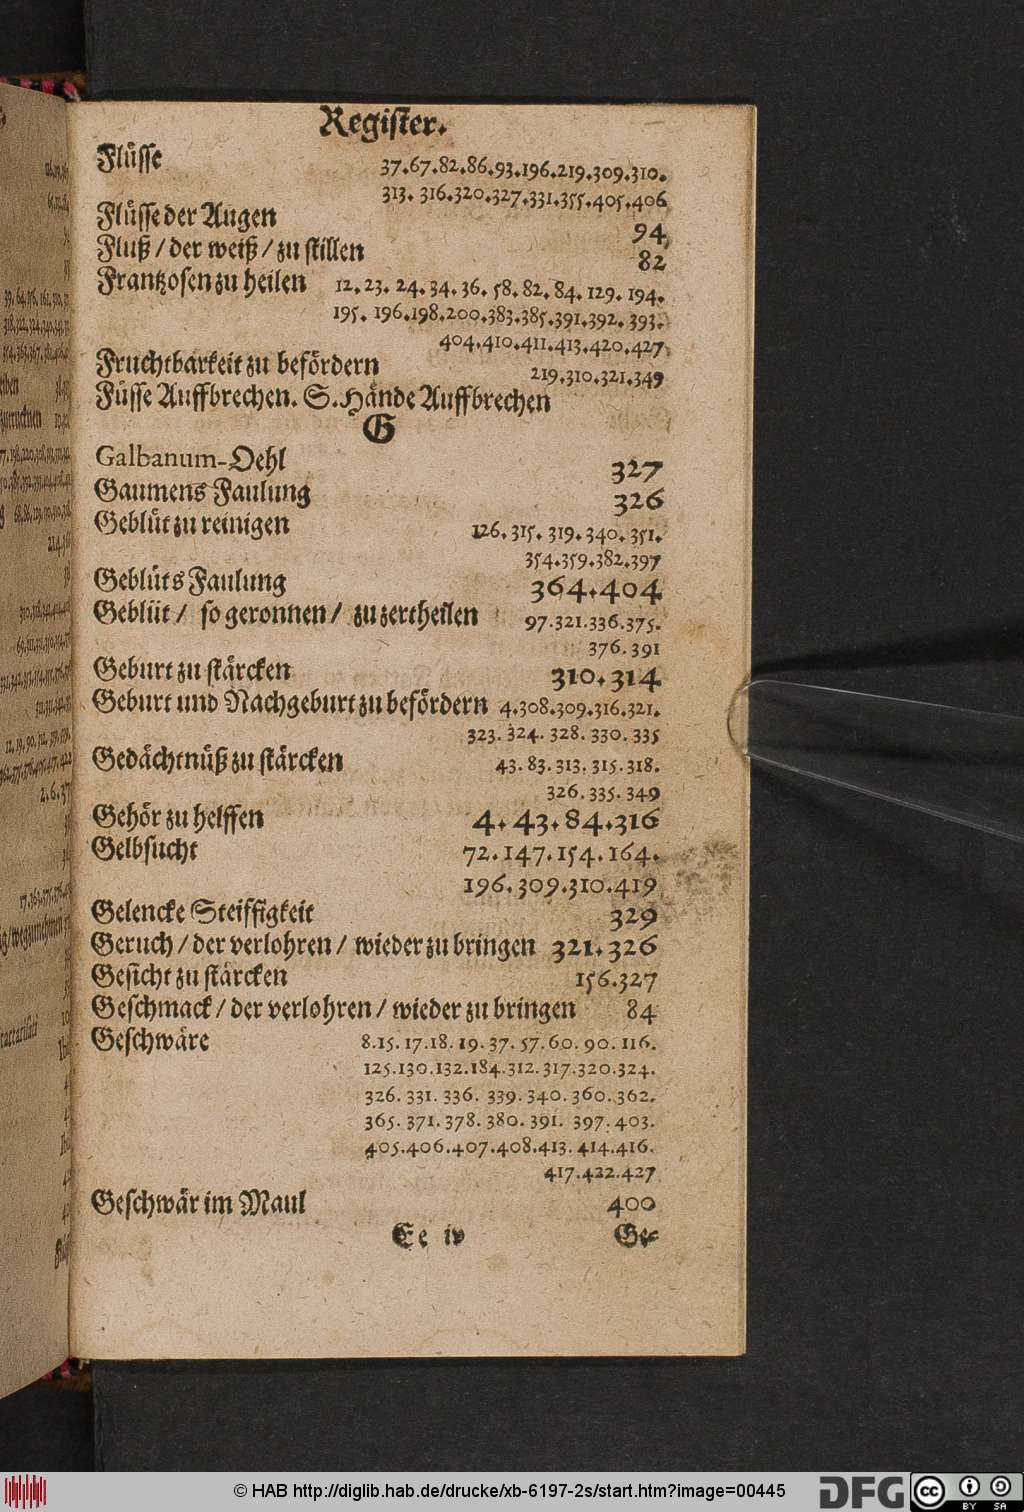 Register.
Flüsse 37.67.82.86.93.196.219.309.310.
313. 316.320.327.331.355.405.406
Flüsse der Augen 94
Fluß / der weiß / zu stillen 82
Frantzosen zu heilen 12. 23. 24. 34. 36. 58. 82. 84. 129. 194.
195. 196.198.200.383.385.391.392. 393.
404.410.411.413.420.427
Fruchtbarkeit zu befördern 219.310.321.349
Füsse Auffbrechen. S. Hände Auffbrechen
G
Galbanum-Oehl 327
Gaumens Faulung 326
Geblüt zu reinigen 126. 315. 319. 340. 351.
354.359.382.397
Geblüts Faulung 364.404
Geblüt / so geronnen / zu zertheilen 97.321.336.375.
376. 391
Geburt zu stärcken 310.314
Geburt und Nachgeburt zu befördern 4.308.309.316.321.
323. 324. 328. 330. 335
Gedächtnüß zu stärcken 43. 83. 313. 315. 318.
326. 335. 349
Gehör zu helffen 4. 43. 84. 316
Gelbsucht 72. 147. 154. 164.
196. 309.310.419
Gelencke Steiffigkeit 329
Geruch / der verlohren / wieder zu bringen 321. 326
Gesicht zu stärcken 156.327
Geschmack / der verlohren / wieder zu bringen 84
Geschwäre 8.15. 17.18. 19. 37. 57. 60. 90. 116.
125.130.132.184.312.317.320.324.
326. 331. 336. 339. 340. 360. 362.
365. 371. 378. 380. 391. 397. 403.
405.406.407.408.413. 414.416.
417.422.427
Geschwär im Maul 400
Ee iv Ge-
© HAB http://diglib.hab.de/drucke/xb-6197-2s/start.htm?image=00445
DFG
cc BY SA